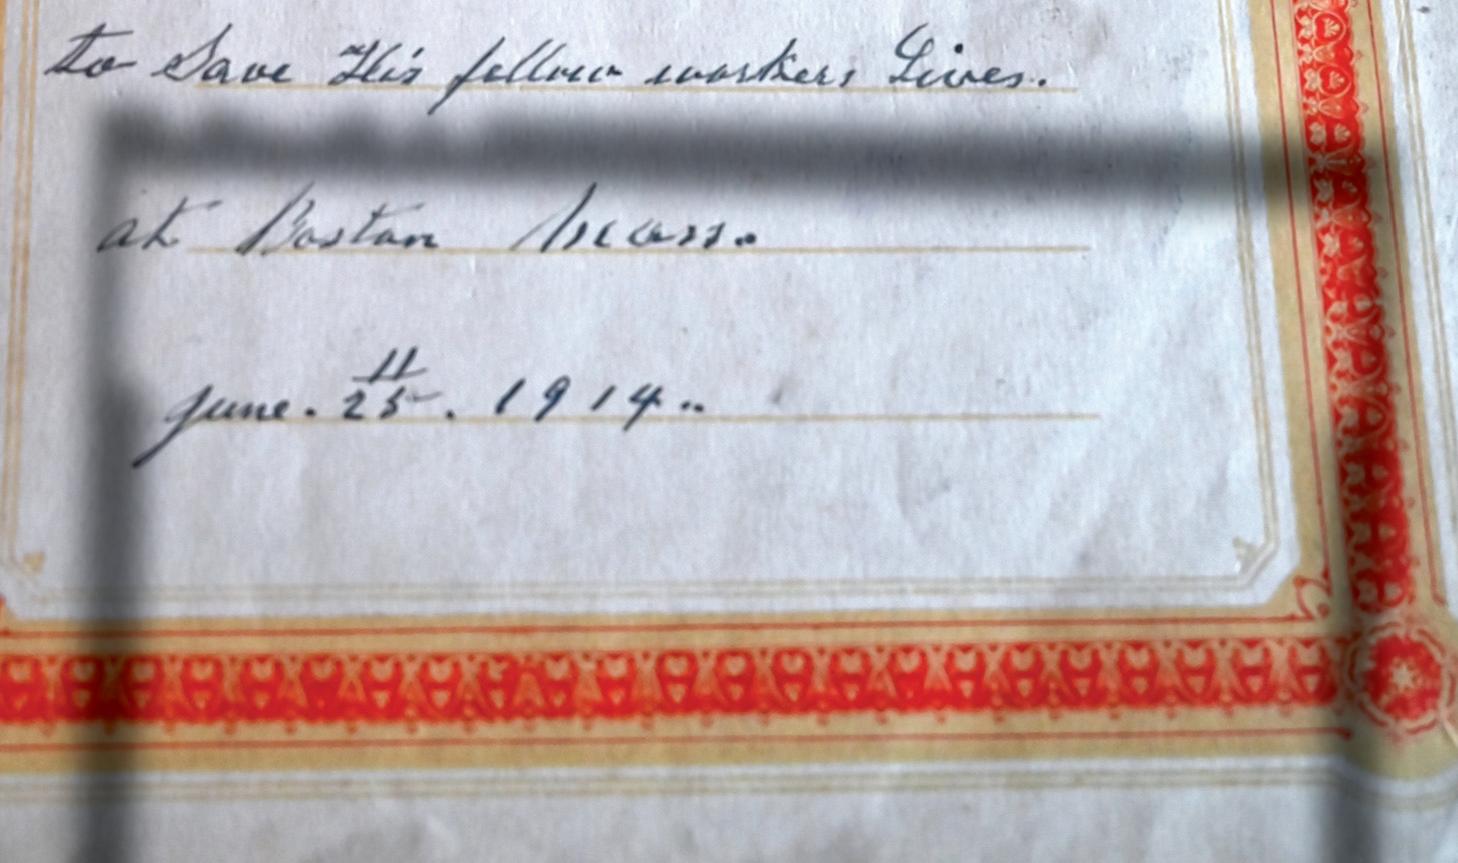 to Save His fellow workers Lives.
at Boston Mass.
June. 11/25. 1914..